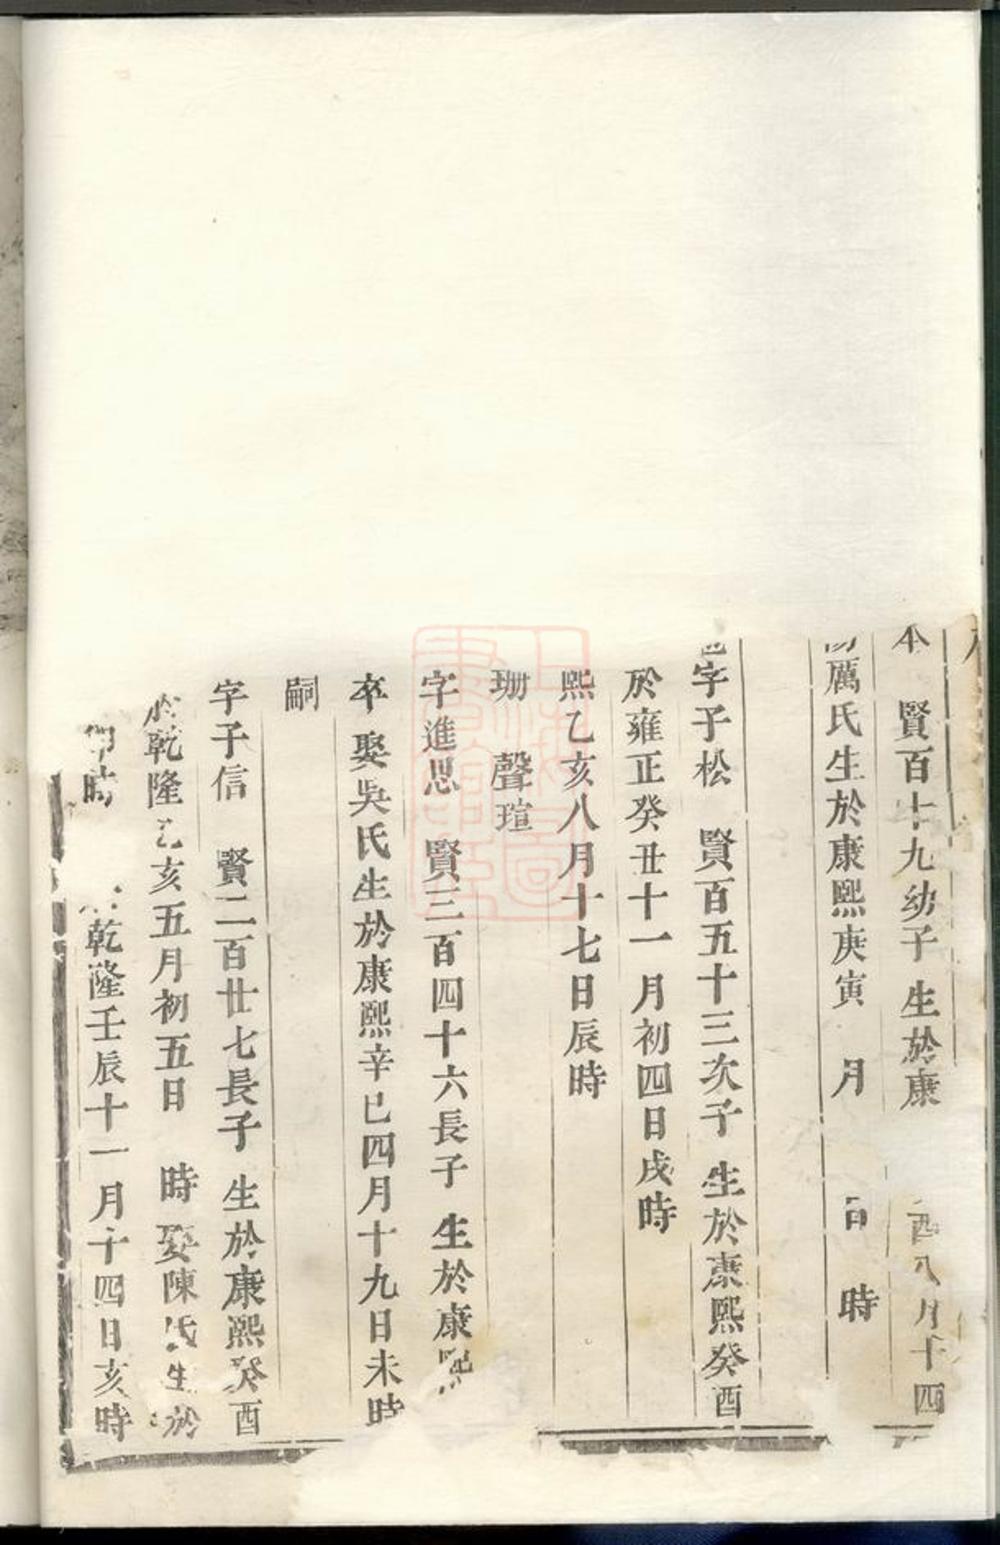 本　賢百十九幼子　生於康　酉八月十四
厲氏生於康熙庚寅　月　日　時
字子松　賢百五十三次子　生於康熙癸酉
於雍正癸丑十一月初四日戌時
熙乙亥八月十七日辰時
珊　聲瑄
字進思　賢三百四十六長子　生於康熙
卒　娶吳氏生於康熙辛巳四月十九日未時
嗣
字子信　賢二百廿七長子　生於康熙癸酉
於乾隆乙亥五月初五日　時　娶陳氏生於
時　乾隆壬辰十一月十四日亥時
上海圖書館藏